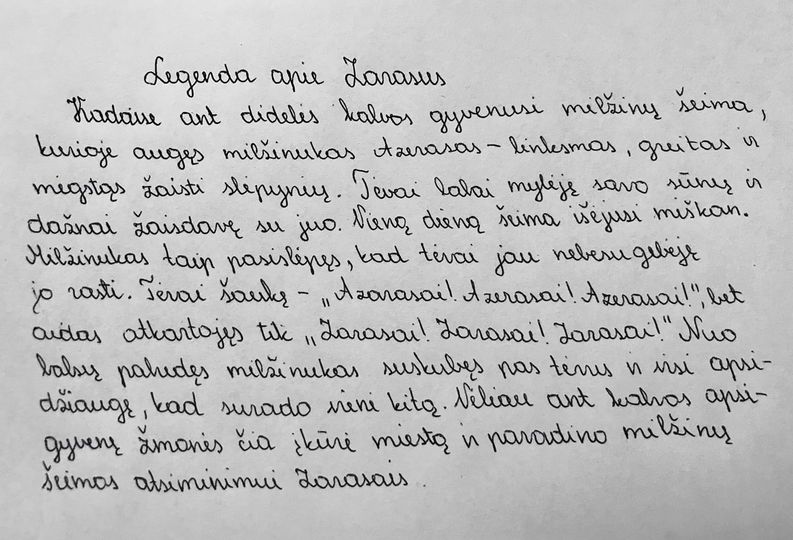 Legenda apie Zarasus
Kadaise ant didelės kalvos gyvenusi milžinų šeima,
kurioje augęs milžinukas Azerasas – linksmas, greitas ir
mėgstąs žaisti slėpynių. Tėvai labai mylėję savo sūnų ir
dažnai žaisdavę su juo. Vieną dieną šeima išėjusi miškan.
Milžinukas taip pasislėpęs, kad tėvai jau nebesugebėję
jo rasti. Tėvai šaukę – „Azarasai! Azerasai! Azerasai!", bet
aidas atkartojęs tik „Zarasai! Zarasai! Zarasai!" Nuo
balsų pabudęs milžinukas suskubęs pas tėvus ir visi apsi-
džiaugę, kad surado vieni kitą. Vėliau ant kalvos apsi-
gyvenę žmonės čia įkūrė miestą ir pavadino milžinų
šeimos atsiminimui Zarasais.